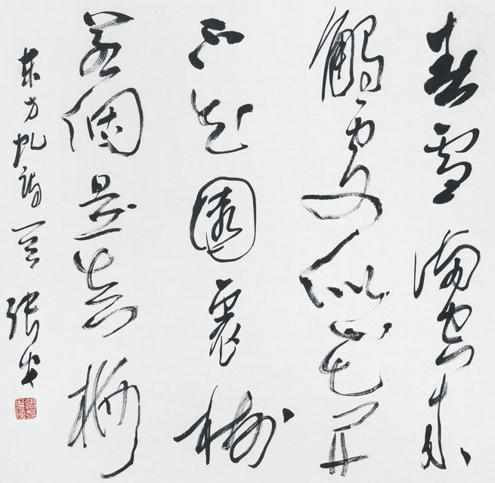 春雪滿空來
觸處似花開
不知園裏樹
若個是真梅
東方虬詩一首 張